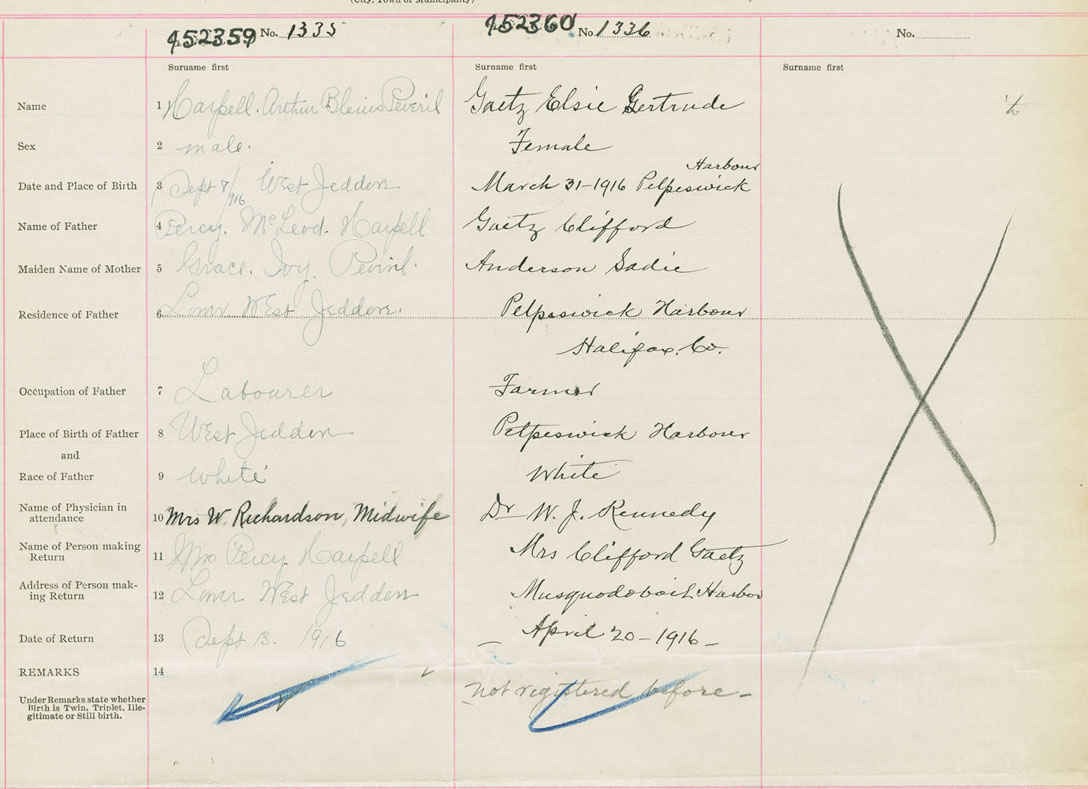 (City, Town or Municipality)
452359 No. 1335
452360 No. 1336
No.
Surname first Surname first Surname first
Name 1 Harpell. Arthur Peveril Gaetz Elsie Gertrude
Sex 2 male. Female
Harbour
Date and Place of Birth 3 Sept 7/916 West Jeddore. March 31-1916 Petpeswick
Name of Father 4 Percy. McLeod. Harpell Gaetz Clifford
Maiden Name of Mother 5 Grace. Ivy. Anderson Sadie
Residence of Father 6 Lower West Jeddore. Petpeswick Harbour
Halifax. Co.
Occupation of Father 7 Labourer Farmer
Place of Birth of Father 8 West Jeddore Petpeswick Harbour
and
Race of Father 9 White White
Name of Physician in
attendance 10 Mrs W. Richardson, Midwife Dr W. J. Kennedy
Name of Person making
Return 11 Mrs Percy Harpell Mrs Clifford Gaetz
Address of Person mak-
ing Return 12 Lower West Jeddore Musquodoboit Harbor
Date of Return 13 Sept 13. 1916 – April 20-1916 –
REMARKS 14
not registered before –
Under Remarks state whether
Birth is Twin, Triplet, Ille-
gitimate or Still birth.